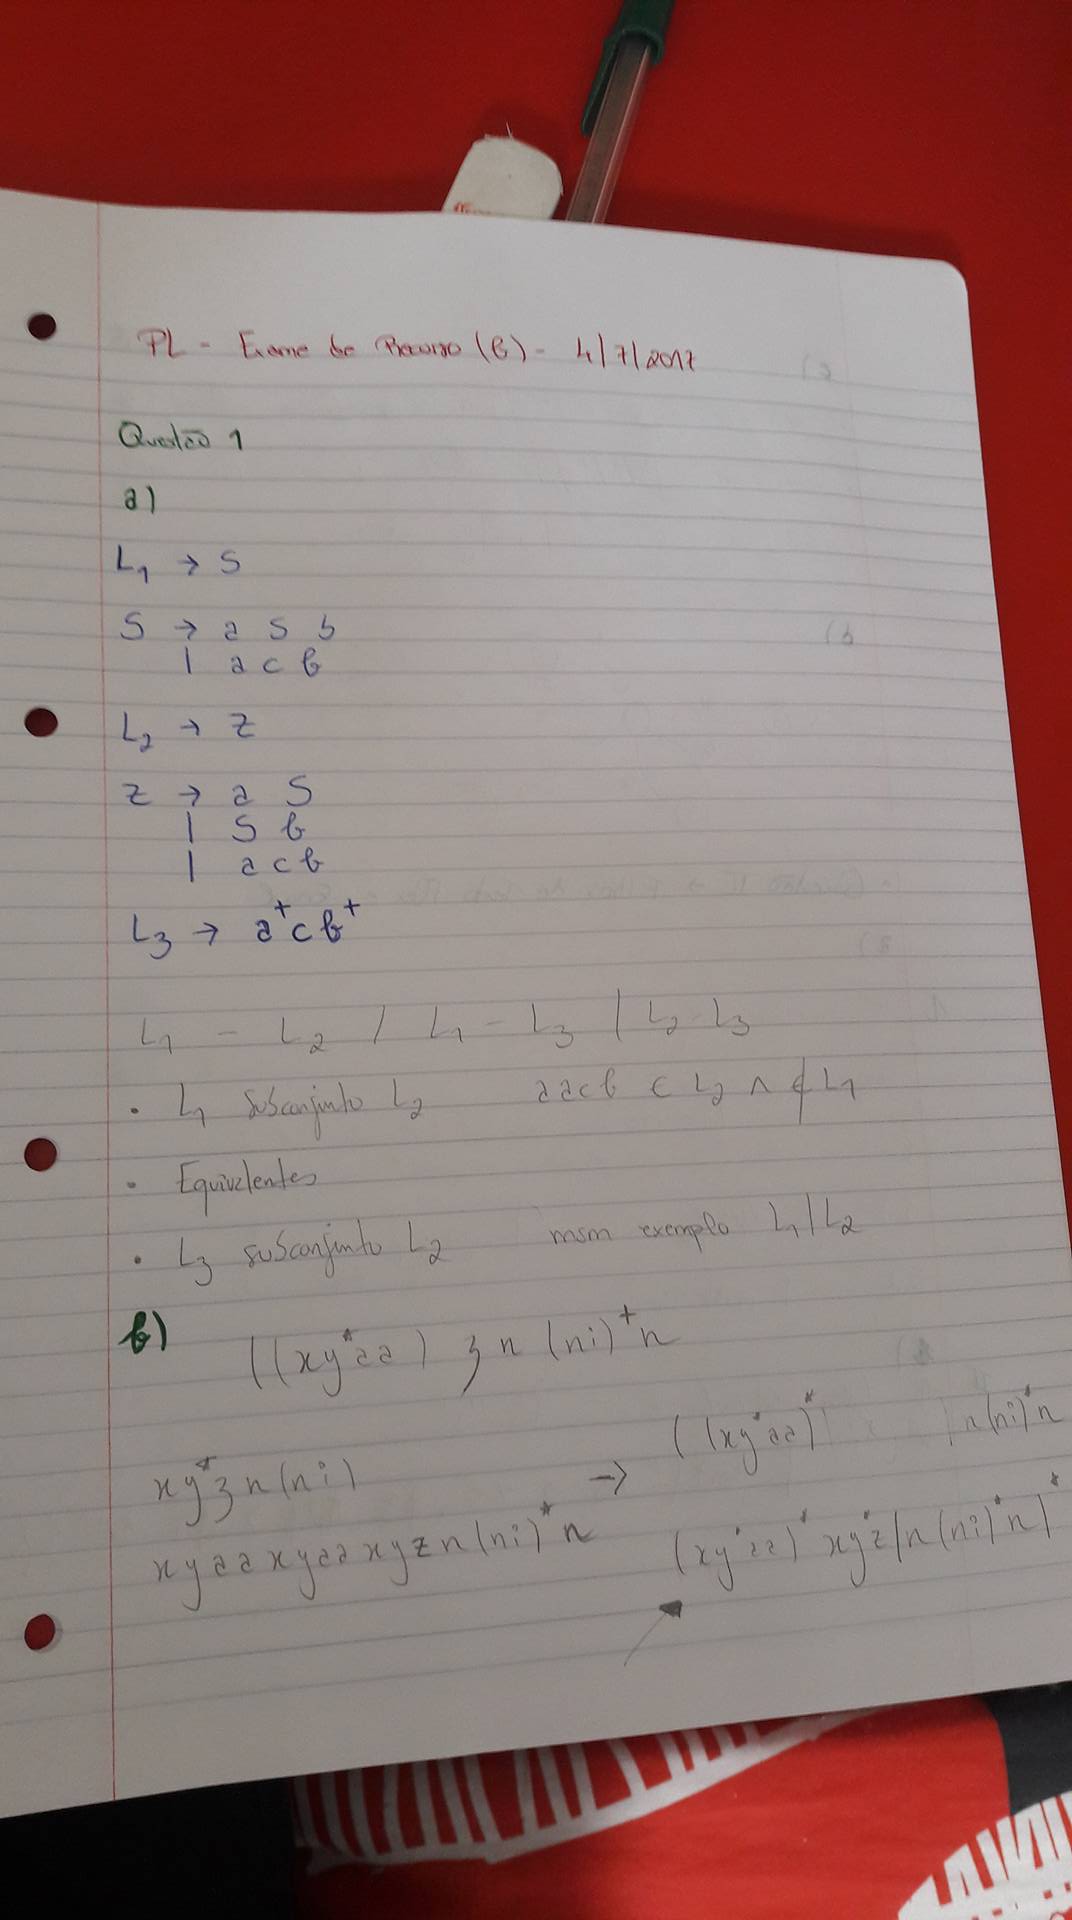 PL - Exame de Recurso (B) - 4/7/2017
Questão 1
a)
L1 → S
S → a S b
| a c b
L2 → Z
Z → a S
| S b
| a c b
L3 → a⁺cb⁺
L1 - L2 / L1 - L3 / L2 L3
• L1 subconjunto L2 aacb ∈ L2 ∧ ∉ L1
• Equivalentes
• L3 subconjunto L2 msm exemplo L1/L2
b)
((xy*aa) z n (ni)⁺n
xy*zn(ni)
xyaaxyaaxyzn(ni)*n →
((xy*aa)* n(ni)*n
(xy*aa)*xy*z/n(ni)*n)*